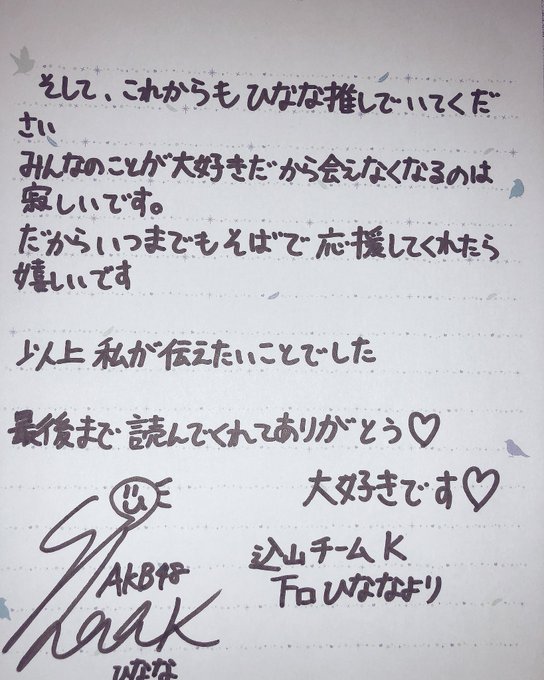 そして、これからもひなな推しでいてくだ
さい
みんなのことが大好きだから会えなくなるのは
寂しいです。
だからいつまでもそばで応援してくれたら
嬉しいです
以上 私が伝えたいことでした
最後まで読んでくれてありがとう♡
大好きです♡
込山チームK
下口ひななより
AKB48
ひなな